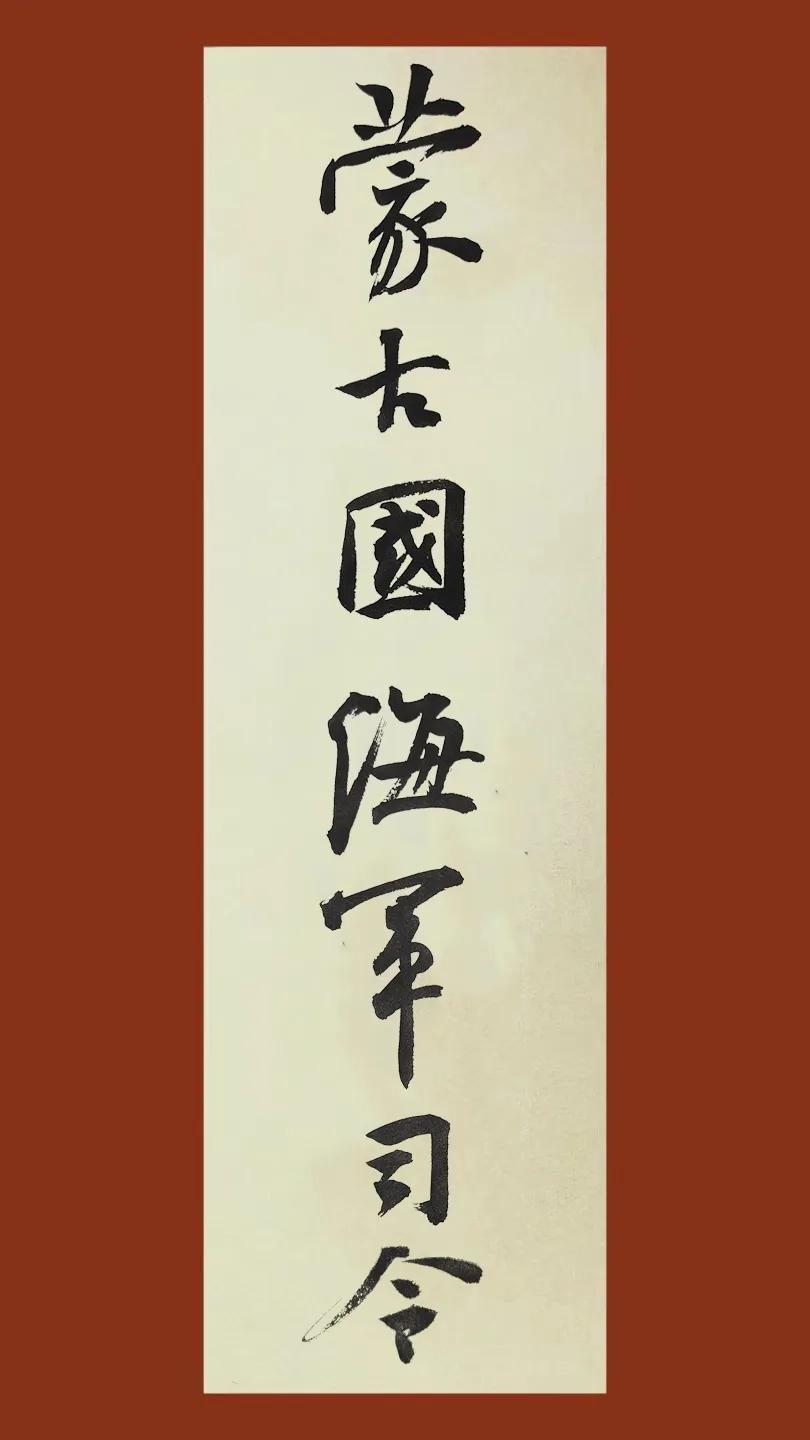 蒙古國海軍司令